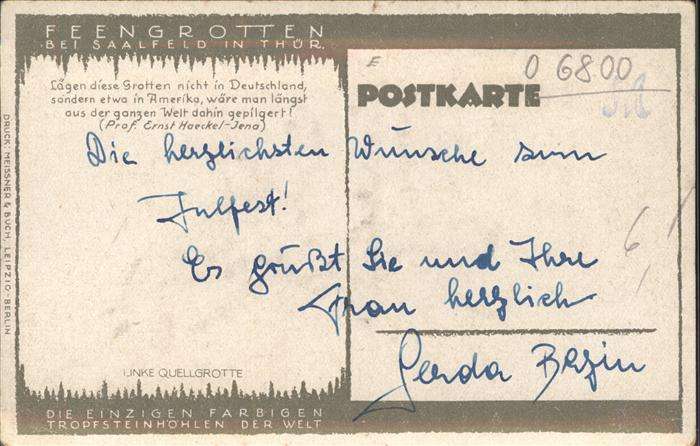 FEENGROTTEN
BEI SAALFELD IN THÜR.
Lägen diese Grotten nicht in Deutschland,
sondern etwa in Amerika, wäre man längst
aus der ganzen Welt dahin gepilgert!
(Prof. Ernst Haeckel-Jena)
E
0 6800
POSTKARTE
Die herzlichsten Wünsche zum
Julfest!
Es grüßt Sie und Ihre
Frau herzlich
Gerda
LINKE QUELLGROTTE
DIE EINZIGEN FARBIGEN
TROPFSTEINHÖHLEN DER WELT
DRUCK: MEISSNER & BUCH, LEIPZIG-BERLIN